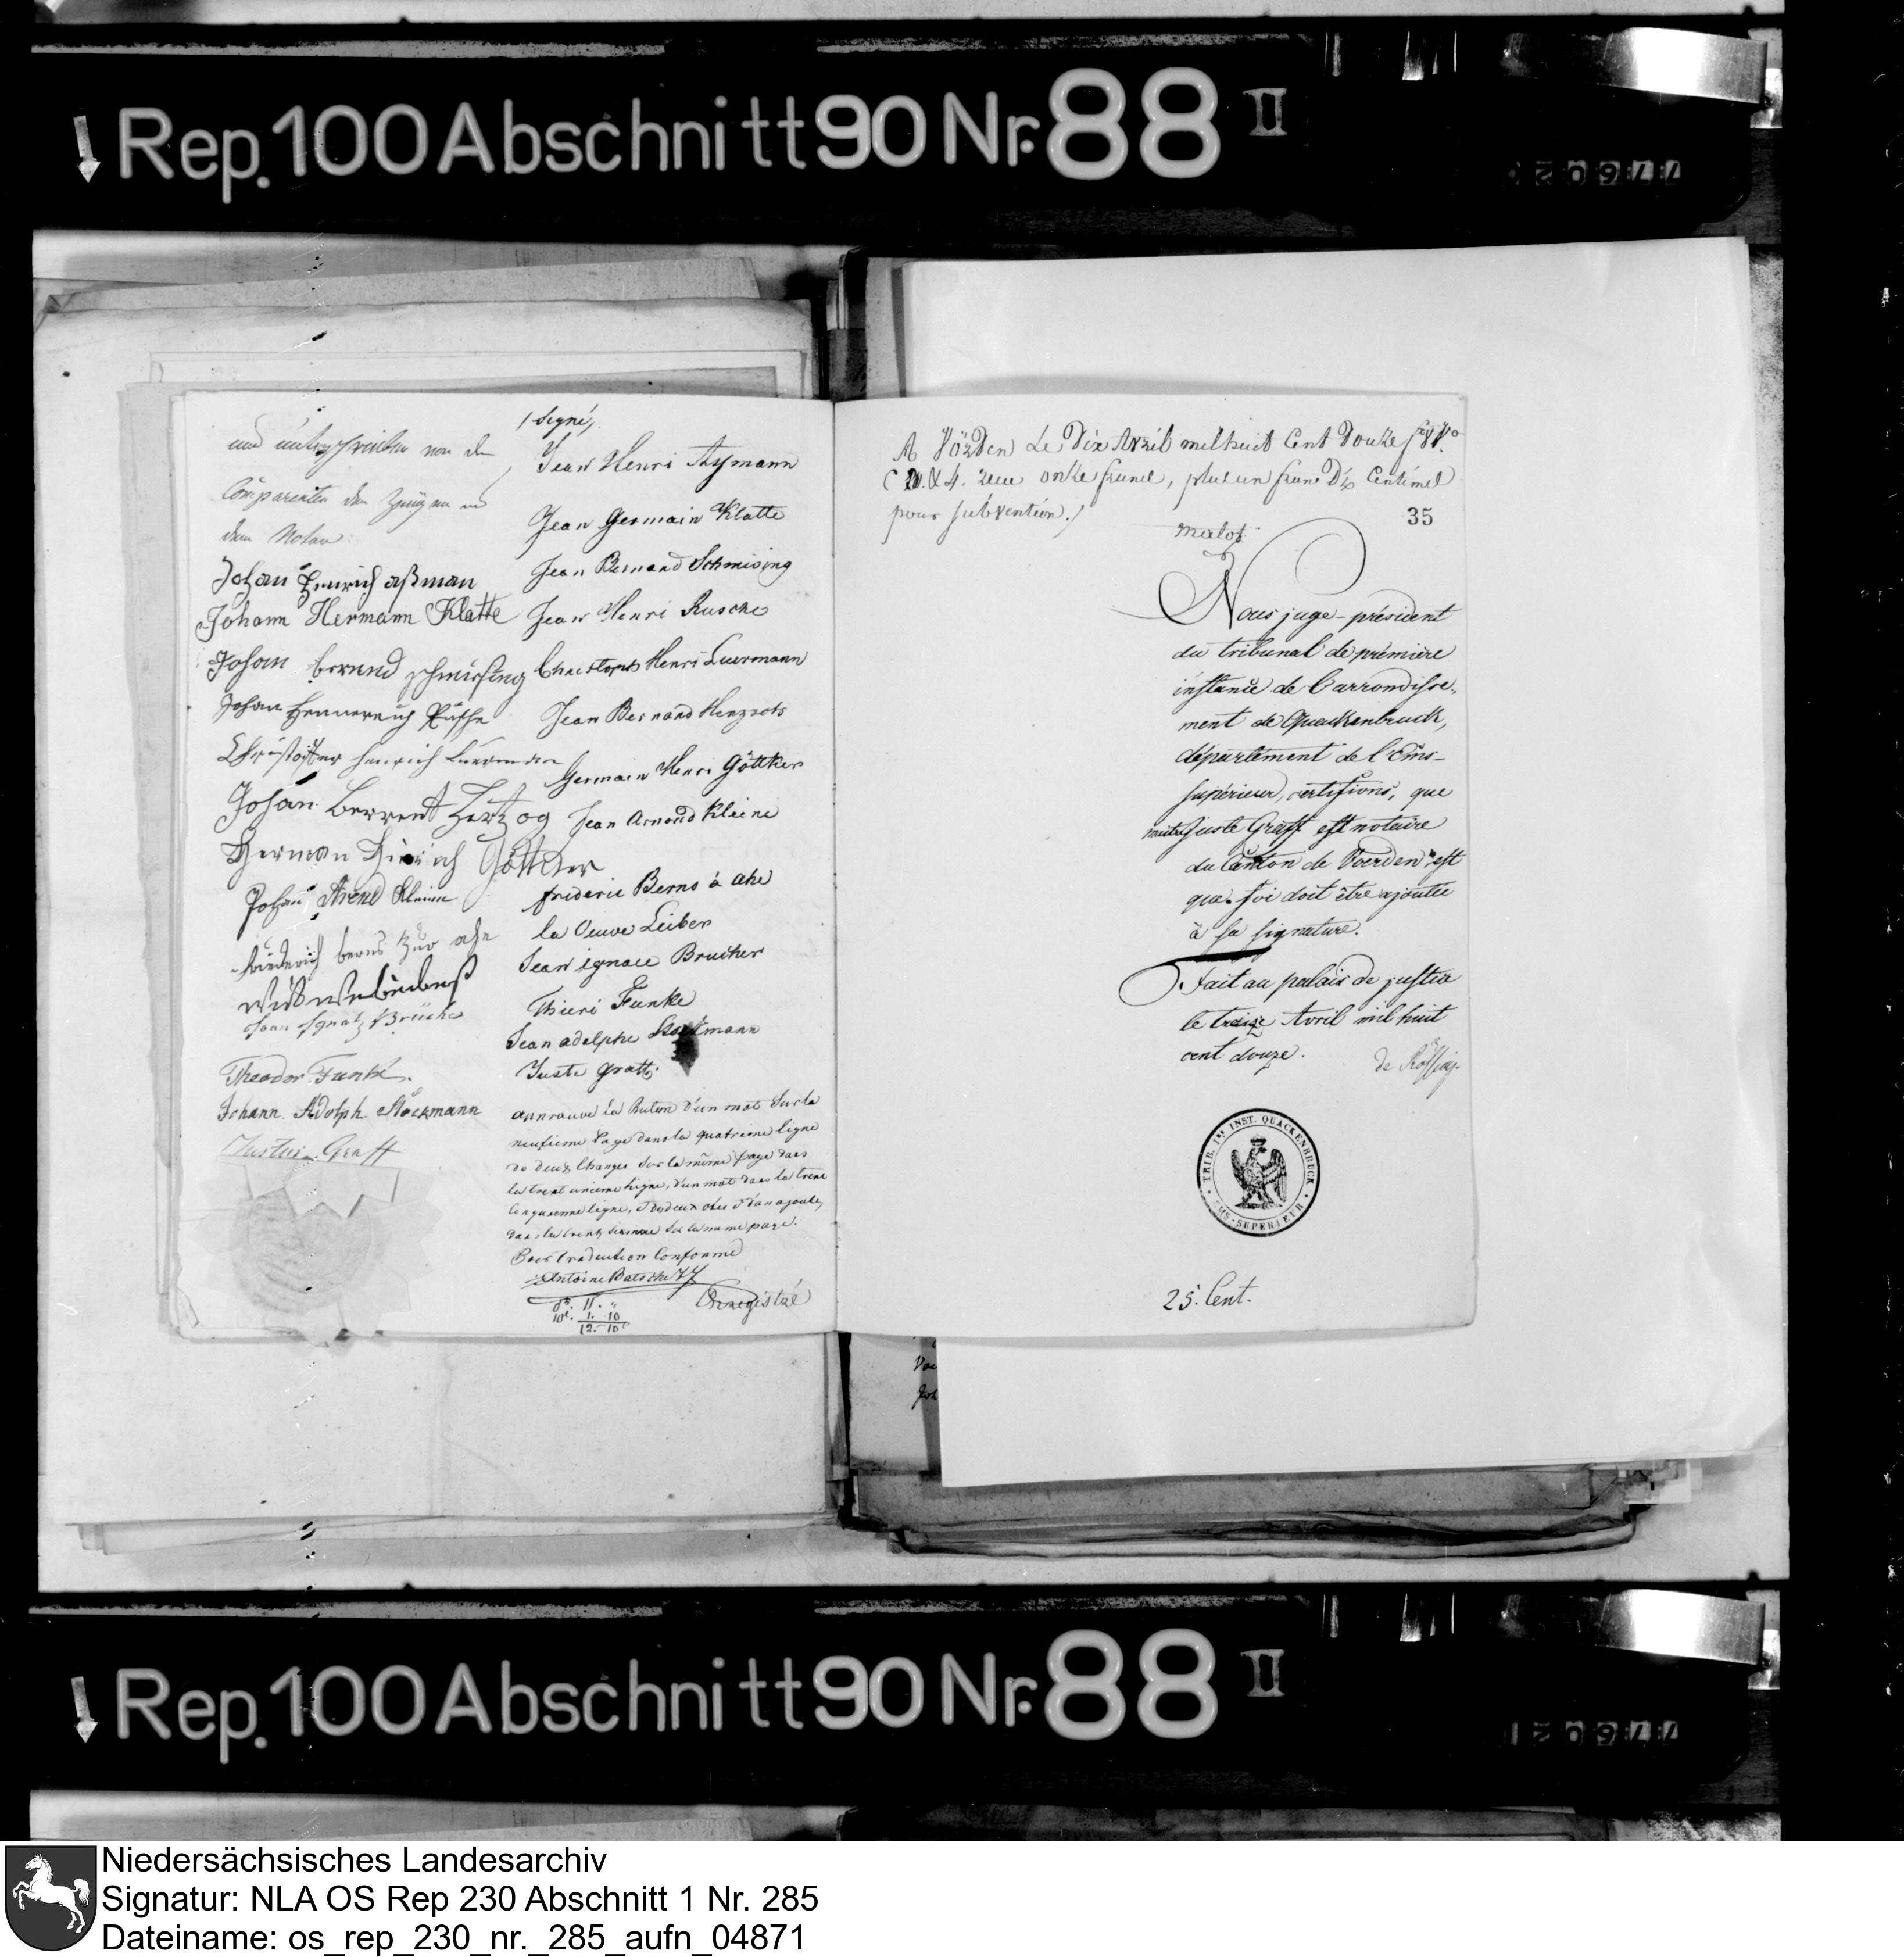 Rep. 100 Abschnitt 90 Nr. 88 II
und unterschrieben von den
Comparenten den Zeugen und
dem Notar
Johan Henrich aßman
Johann Hermann Klatte
Johan berend schmising
Johan Hennerich Rusche
Christoffer Henrich Luermann
Johan Berrent Hertzog
Herman Hinrich Göttker
Johan Arend Kleine
friederich berns zur ahe
witwe
Joan Ignatz Brücher
Theodor Funke.
Johann Adolph Stockmann
Justus Graff
/ Signé,
Jean Henri Asymann
Jean Germain Klatte
Jean Bernard Schmising
Jean Henri Rusche
Christoph Henri Luermann
Jean Bernard Herzoch
Germain Henri Göttker
Jean Arnold Kleine
frideric Berns à ahe
la Veuve Leiber
Jean ignace Brucher
Thieri Funke
Jean adolphe Stockmann
Juste Graff.
approuvé la Rature d'un mot Sur la
neufieme Page dans la quatrieme ligne
de deux Changés Sur la même page dans
la trent unieme ligne, d'un mot dans la trent
cinquieme ligne, et
dans la trent sixieme Sur la meme page.
Pour traduction Conforme
Antoine Batsche
11. "
1. 10
12. 10
Enregistré
A Vörden Le Dix Avril mil huit Cent Douze
C 4. reçu onze francs, plus un franc Dix Centimes
pour subvention./
malof
35
Nous juge-président
du tribunal de première
instance de l'arrondisse-
ment de Quackenbruck,
département de l'Ems-
supérieur, certifions, que
maitre Juste Graff est notaire
du Canton de Voerden est
que foi doit être ajoutée
à sa signature.
Fait au palais de justice
le treize Avril mil huit
cent douze.
de
TRIB. 1re INST. QUACKENBRUCK
EMS-SUPERIEUR
25. Cent.
Rep. 100 Abschnitt 90 Nr. 88 II
Niedersächsisches Landesarchiv
Signatur: NLA OS Rep 230 Abschnitt 1 Nr. 285
Dateiname: os_rep_230_nr._285_aufn_04871